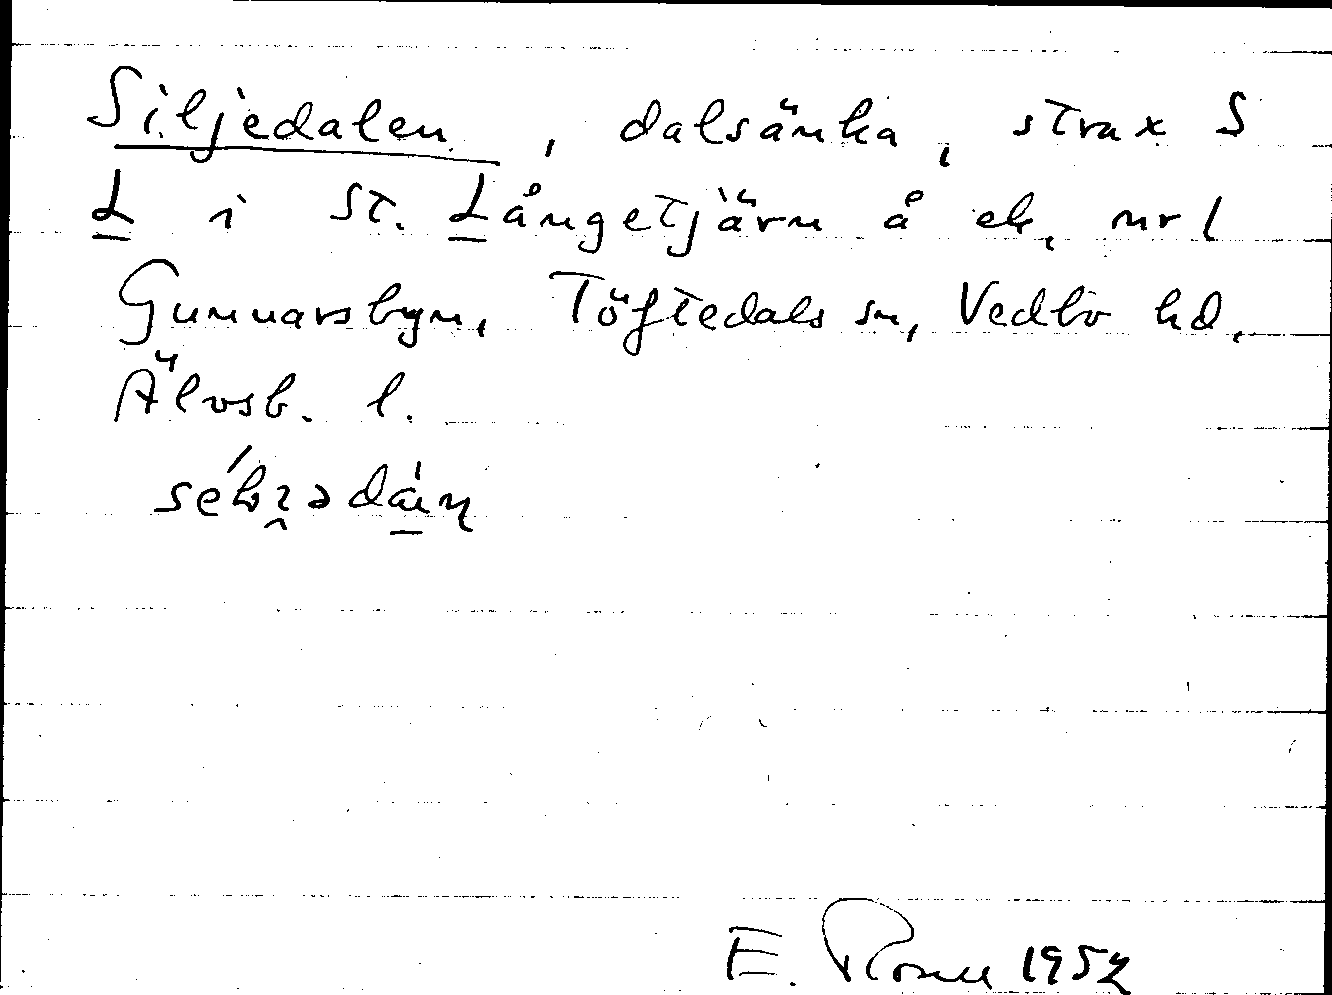 Siljedalen, dalsänka, strax S
L i St. Långetjärn å ek. nr 1
Gunnarsbyn, Töftedals sn, Vedbo hd,
Älvsb. l.
E. 1952